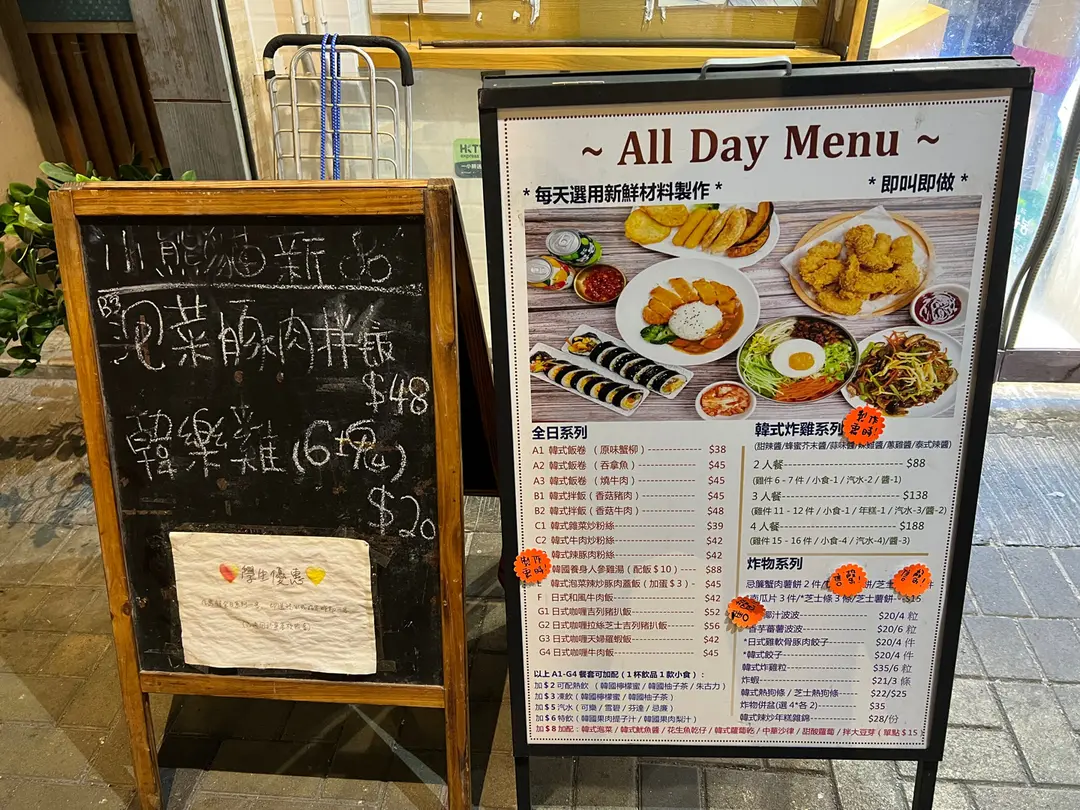 小熊貓新品
B3 泡菜豚肉拌飯
$48
韓樂雞(6件)
$20
學生優惠
~ All Day Menu ~
*每天選用新鮮材料製作*
*即叫即做*
全日系列
A1 韓式飯卷 (原味蟹柳) $38
A2 韓式飯卷 (吞拿魚) $45
A3 韓式飯卷 (燒牛肉) $45
B1 韓式拌飯 (香菇豬肉) $45
B2 韓式拌飯 (香菇牛肉) $48
C1 韓式雜菜炒粉絲 $39
C2 韓式牛肉炒粉絲 $42
韓式辣豚肉粉絲 $42
製作需時
韓國養身人參雞湯 (配飯$10) $88
E 韓式泡菜辣炒豚肉蓋飯 (加蛋$3) $45
F 日式和風牛肉飯 $42
G1 日式咖喱吉列豬扒飯 $52
G2 日式咖喱拉絲芝士吉列豬扒飯 $56
G3 日式咖喱天婦羅蝦飯 $42
G4 日式咖喱牛肉飯 $45
以上 A1-G4 餐套可加配 (1杯飲品1款小食):
加$2 可配熱飲 (韓國檸檬蜜 / 韓國柚子茶 / 朱古力)
加$3 凍飲 (韓國檸檬蜜 / 韓國柚子茶)
加$5 汽水 (可樂 / 雪碧 / 芬達 / 忌廉)
加$6 特飲 (韓國果肉提子汁 / 韓國果肉梨汁)
加$8 加配: 韓式泡菜 / 韓式魷魚醬 / 花生魚乾仔 / 韓式蘿蔔乾 / 中華沙律 / 甜酸蘿蔔 / 拌大豆芽 (單點$15
韓式炸雞系列
製作需時!
(甜辣醬/蜂蜜芥末醬/蒜味醬/
蔥雞醬/泰式辣醬)
2人餐 $88
(雞件 6 - 7 件 / 小食-1 / 汽水-2 / 醬-1)
3人餐 $138
(雞件 11 - 12 件 / 小食-1 / 年糕-1 / 汽水-3/醬-2)
4人餐 $188
(雞件 15 - 16 件 / 小食-4 / 汽水-4)/醬-3)
炸物系列
忌廉蟹肉薯餅 2 件
南瓜片 3 件/*芝士條 3 條/芝士薯餅 $15
椰汁波波 $20/4 粒
*香芋蕃薯波波 $20/6 粒
*日式雞軟骨豚肉餃子 $20/4 件
*韓式餃子 $20/4 件
韓式炸雞粒 $35/6 粒
炸蝦 $21/3 條
韓式熱狗條 / 芝士熱狗條 $22/$25
炸物併盆(選 4*各 2) $35
韓式辣炒年糕雜錦 $28/份